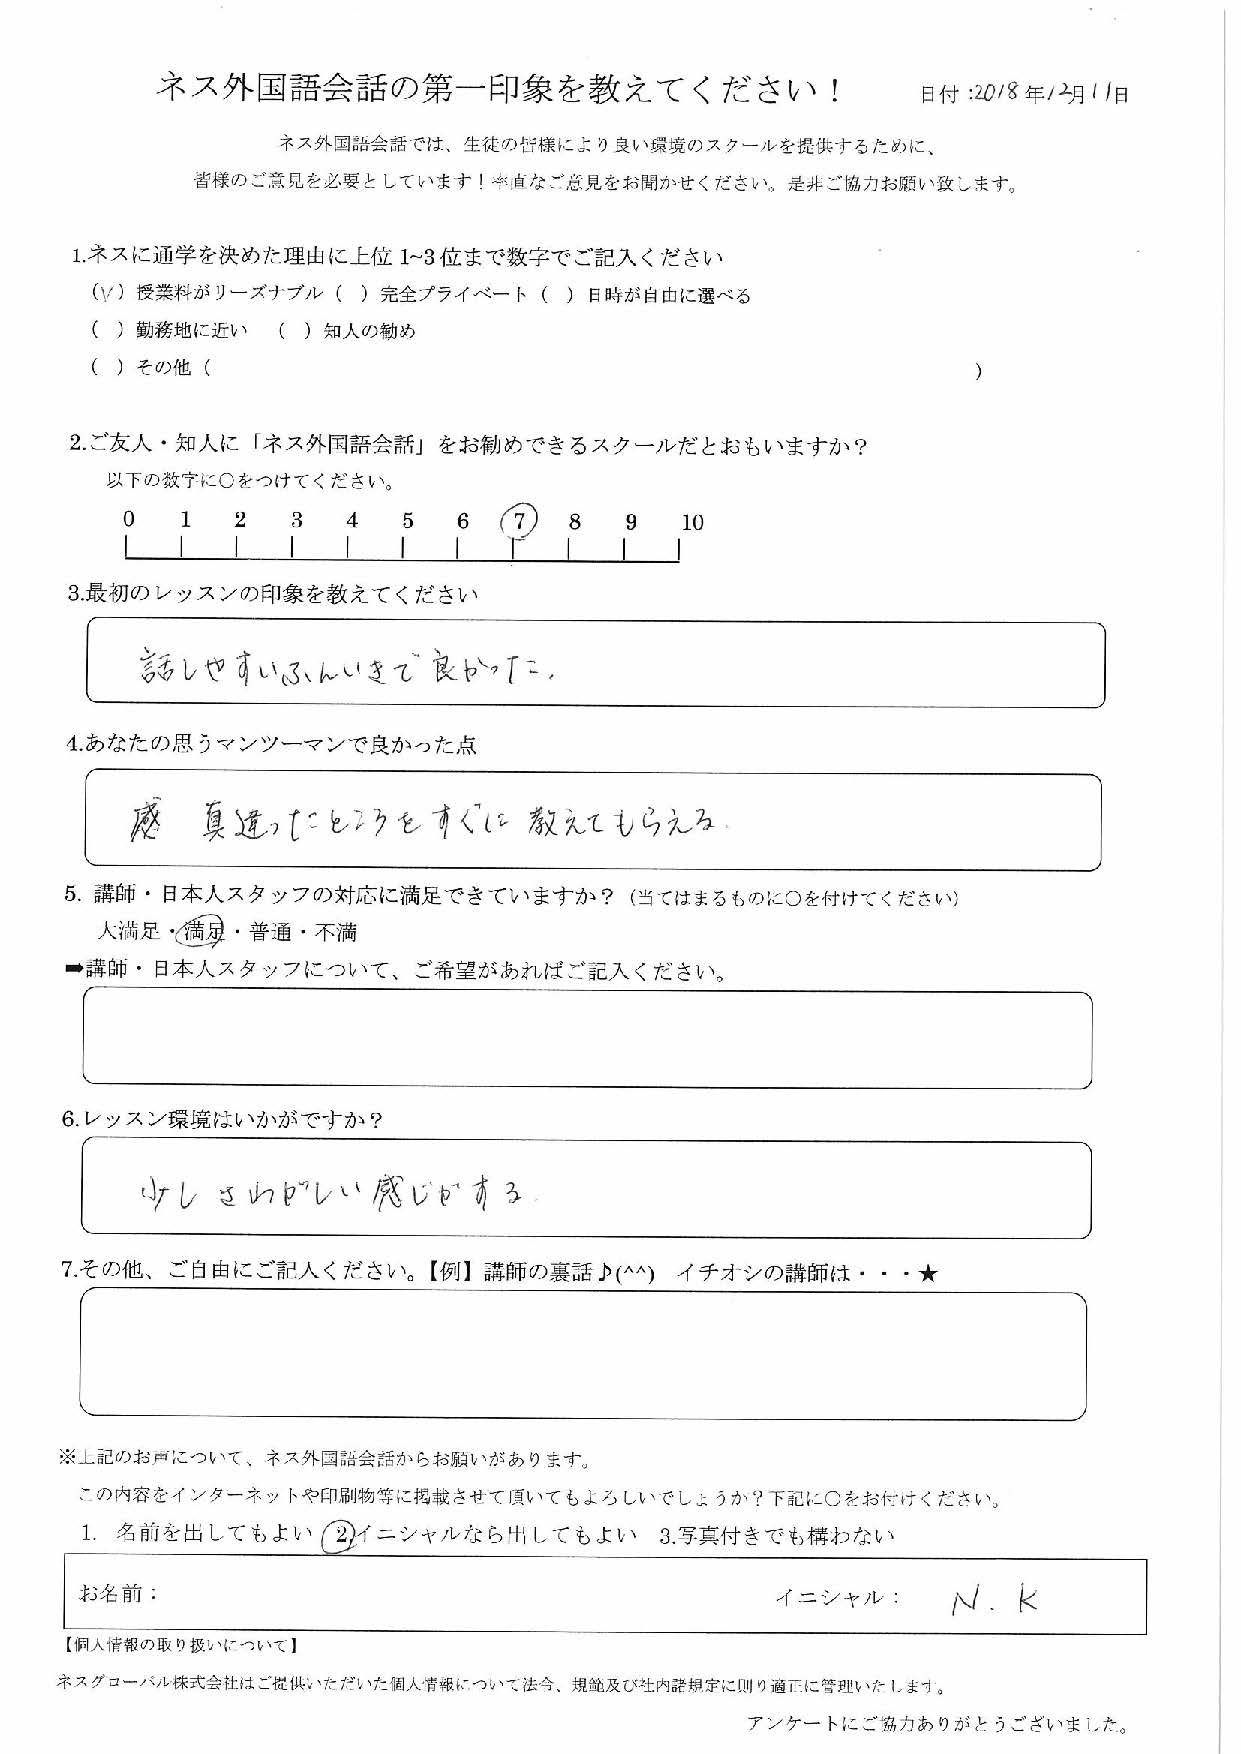 ネス外国語会話の第一印象を教えてください！ 日付：2018年12月11日
ネス外国語会話では、生徒の皆様により良い環境のスクールを提供するために、
皆様のご意見を必要としています！率直なご意見をお聞かせください。是非ご協力お願い致します。
1.ネスに通学を決めた理由に上位 1~3 位まで数字でご記入ください
（V）授業料がリーズナブル（ ）完全プライベート（ ）日時が自由に選べる
（ ）勤務地に近い （ ）知人の勧め
（ ）その他（ ）
2.ご友人・知人に「ネス外国語会話」をお勧めできるスクールだとおもいますか？
以下の数字に○をつけてください。
0 1 2 3 4 5 6 7 8 9 10
3.最初のレッスンの印象を教えてください
話しやすいふんいきで良かった.
4.あなたの思うマンツーマンで良かった点
感 真違ったところをすぐに教えてもらえる.
5. 講師・日本人スタッフの対応に満足できていますか？（当てはまるものに○を付けてください）
大満足・満足・普通・不満
➡講師・日本人スタッフについて、ご希望があればご記入ください。
6.レッスン環境はいかがですか？
少しさわがしい感じがする.
7.その他、ご自由にご記入ください。【例】講師の裏話♪(^^) イチオシの講師は・・・★
※上記のお声について、ネス外国語会話からお願いがあります。
この内容をインターネットや印刷物等に掲載させて頂いてもよろしいでしょうか？下記に○をお付けください。
1. 名前を出してもよい 2.イニシャルなら出してもよい 3.写真付きでも構わない
お名前： イニシャル： N. K
【個人情報の取り扱いについて】
ネスグローバル株式会社はご提供いただいた個人情報について法令、規範及び社内諸規定に則り適正に管理いたします。
アンケートにご協力ありがとうございました。